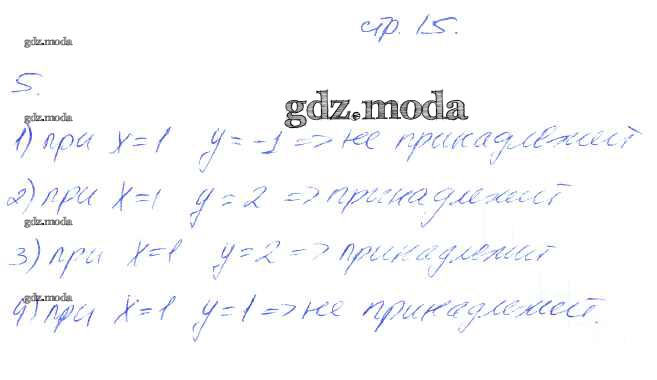 стр. 15.
gdz.moda
5.
gdz.moda
gdz.moda
1) при x=1 y=-1 => не принадлежит
2) при x=1 y=2 => принадлежит
gdz.moda
3) при x=1 y=2 => принадлежит
gdz.moda
4) при x=1 y=1 => не принадлежит.